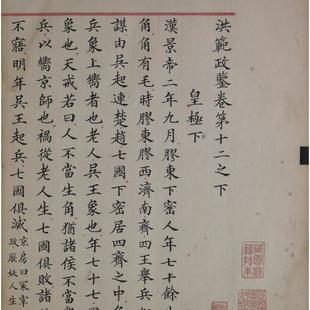 洪範政鑒卷第十二之下
皇極下
漢景帝二年九月膠東下密人年七十餘生
角角有毛時膠東膠西濟南齊四王舉兵
謀由吳起連楚趙七國下密居四齊之中角
兵象上嚮者也老人吳王象也年七十七國
象也天戒若曰人不當生角猶諸侯不當
兵以嚮京師也禍從老人生七國俱敗諸
不寤明年吳王起兵七國俱滅
京房曰冢宰
政厥妖人生